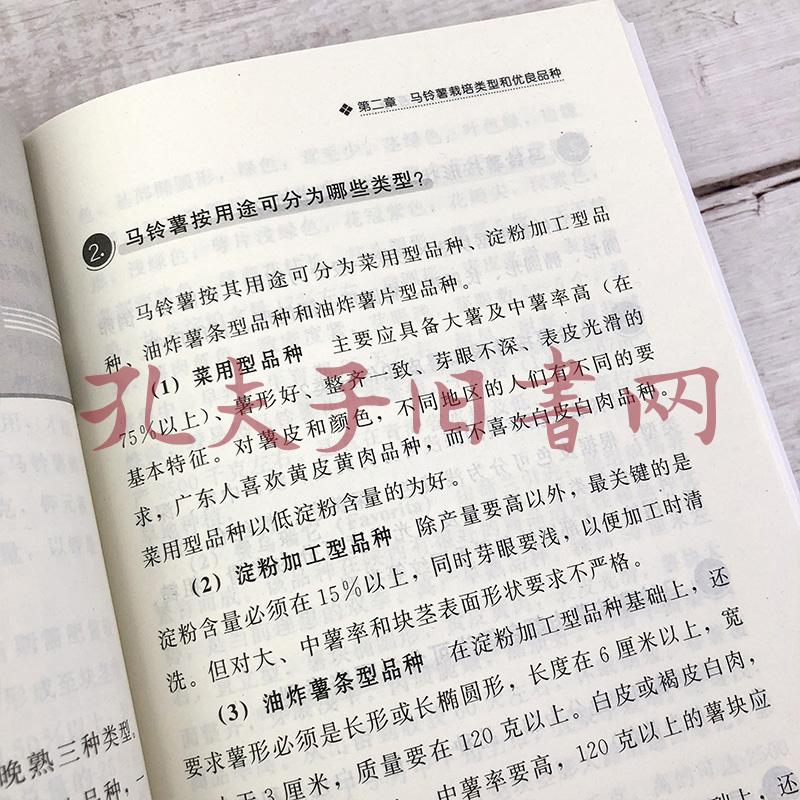 ❖ 第二章 马铃薯栽培类型和优良品种
2. 马铃薯按用途可分为哪些类型？
马铃薯按其用途可分为菜用型品种、淀粉加工型品
种、油炸薯条型品种和油炸薯片型品种。
(1) 菜用型品种 主要应具备大薯及中薯率高（在
75%以上）、薯形好、整齐一致、芽眼不深、表皮光滑的
基本特征。对薯皮和颜色，不同地区的人们有不同的要
求，广东人喜欢黄皮黄肉品种，而不喜欢白皮白肉品种。
菜用型品种以低淀粉含量的为好。
(2) 淀粉加工型品种 除产量要高以外，最关键的是
淀粉含量必须在15%以上，同时芽眼要浅，以便加工时清
洗。但对大、中薯率和块茎表面形状要求不严格。
(3) 油炸薯条型品种 在淀粉加工型品种基础上，还
要求薯形必须是长形或长椭圆形，长度在6厘米以上，宽
于3厘米，质量要在120克以上。白皮或褐皮白肉，
中薯率要高，120克以上的薯块应
晚熟三种类型。
品种，
孔夫子旧书网